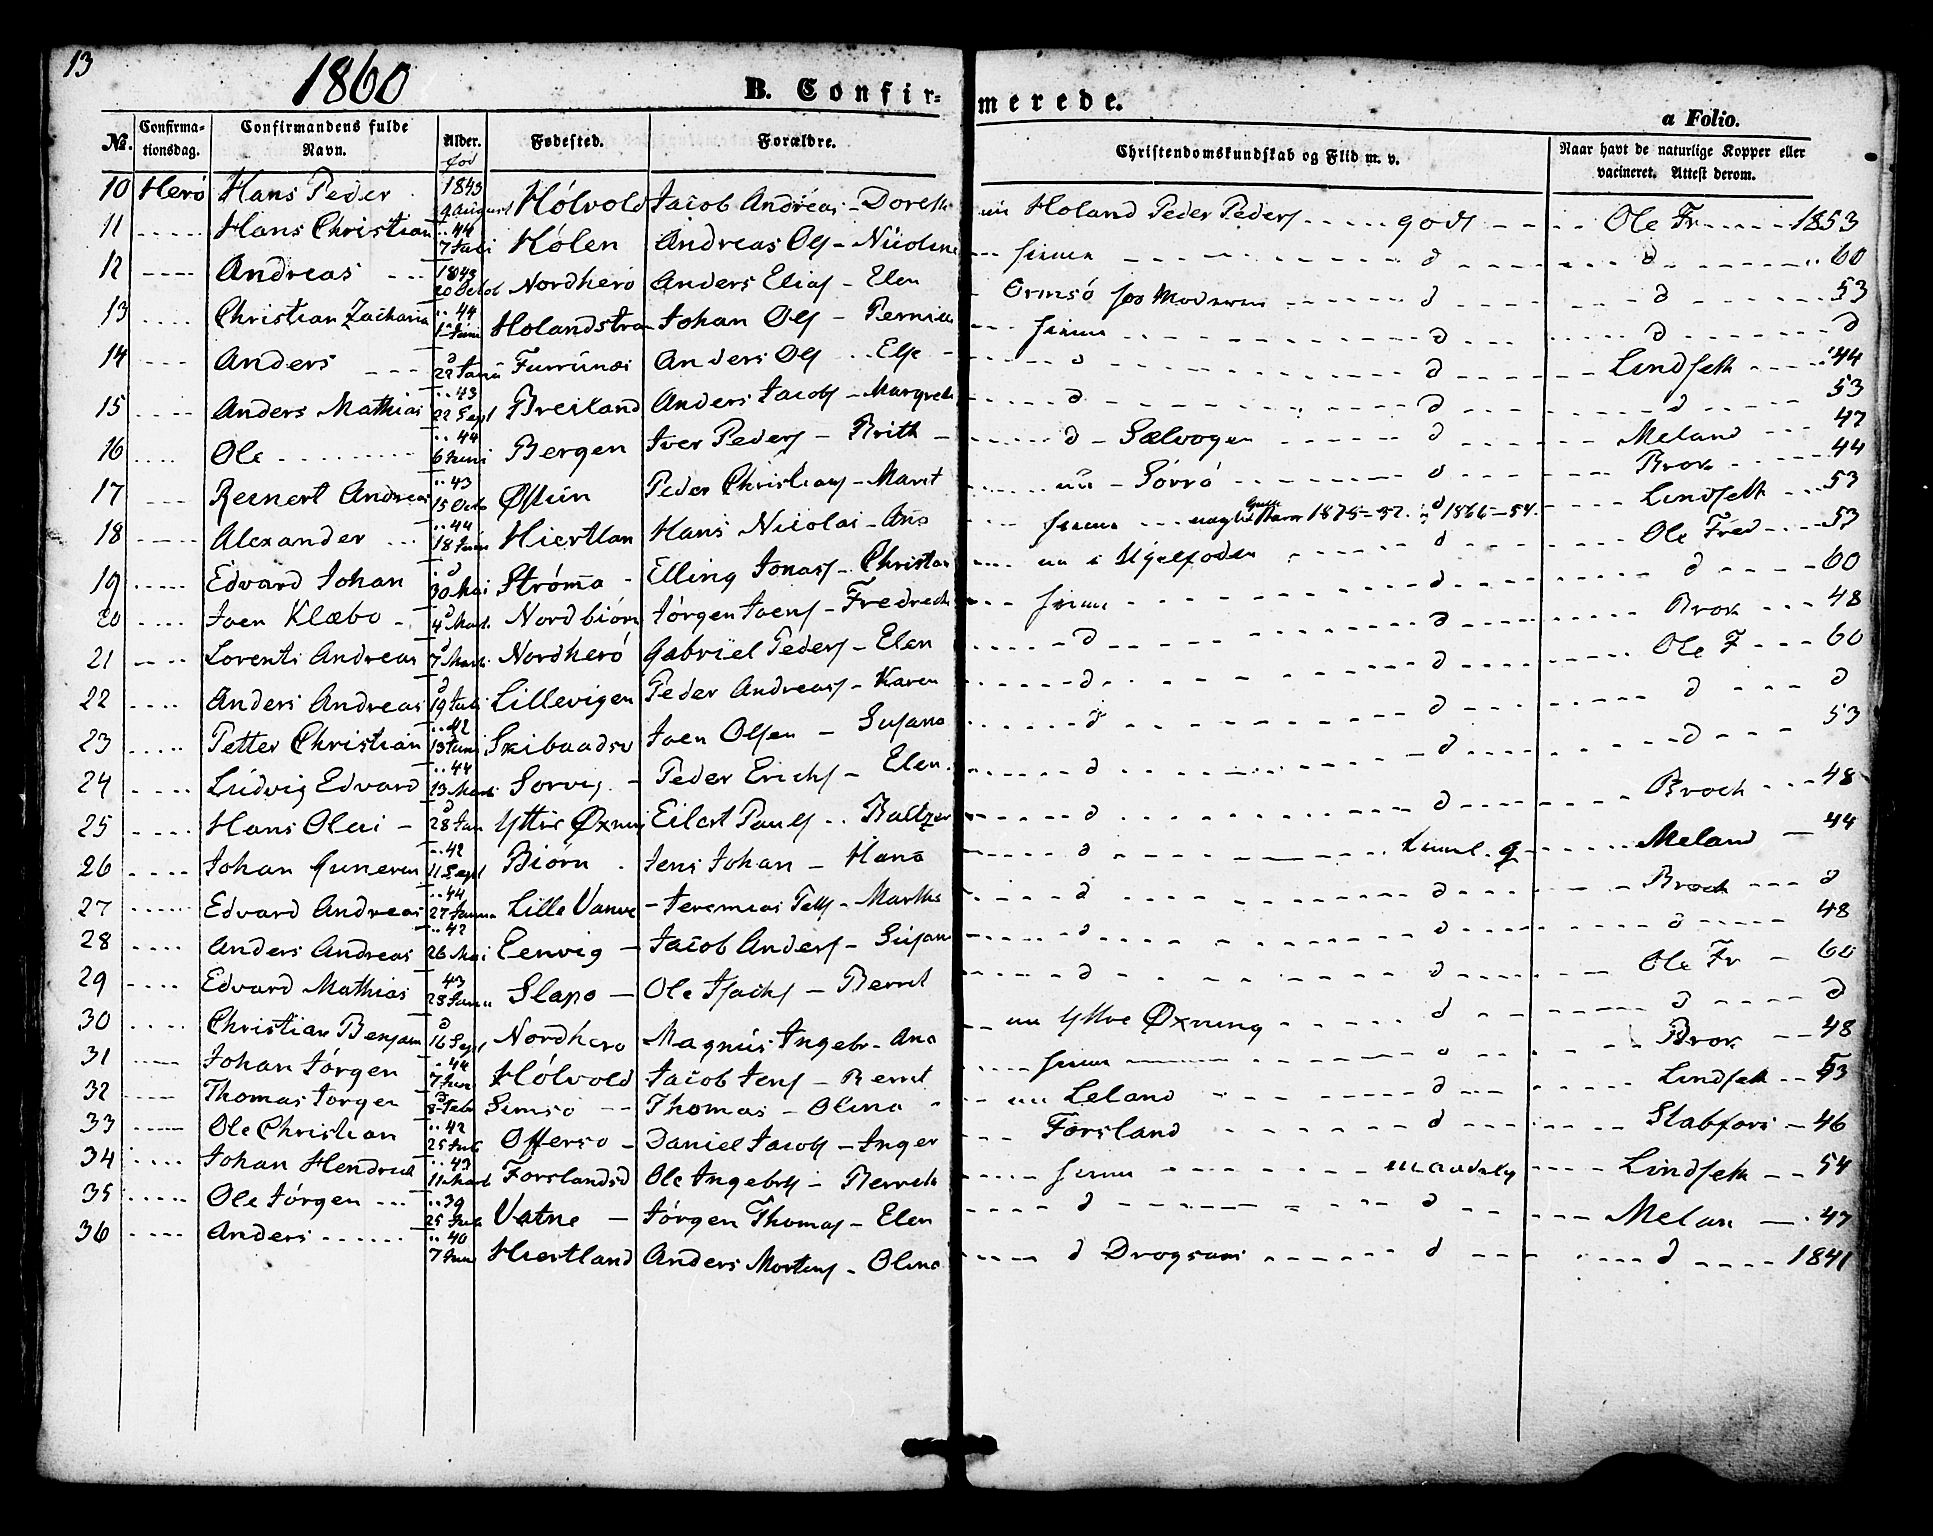 13
1860
B. Confir-
merede.
a Folio.
No. Confirma-tionsdag. Confirmandens fulde Navn. Alder. Fødested. Forældre. Christendomskundskab og Flid m. v. Naar havt de naturlige Kopper eller vacineret. Attest derom.
fød
10 Herö Hans Peder 1843 9 August Hólvold Jacob Andreas - Doreth nu Holand Peder Peders godt Ole Fr 1853
11 Hans Christian 44 7 Juli Kólen Andreas Ols - Nicoline d d 60
12 Andreas 1843 20 Octob Nordheró Anders Elias - Elen Ormsó d d 53
13 Christian Zacharia 44 Holandstra Johan Ols - Pernil d d d
14 Anders d 22 Furrunes Anders Ols Else d d Lindseth 44
15 Anders Mathias 43 22 Sept Breiland Anders Jacobs - Margreth d d d 53
16 Ole 44 6 Juni Bergen Iver Peders - Brith d - Sælvogen d Meland 47
17 Reinert Andreas 43 15 Octo Østün Peder Christians - Marit nu - Sórró d Brok 44
18 Alexander 44 18 Juni Hiertlan Hans Nicolai - Ane 1875-32. d 1866-54. Lindseth 53
19 Edvard Johan d 30 Mai Stróma Elling Jonas - Christia nu i d Ole Fred 53
20 Joen Klæbo d 4 Nordbiórn Jórgen Joens - Fredrech d d 60
21 Lorents Andreas d 7 Nordheró Gabriel Peders - Elen d d Brok 48
22 Anders Andreas d 19 Juli Lillevigen Peder Andreas - Karen d d Ole F 60
23 Petter Christian 42 13 Juni Skibaadsv Joen Olsen - Susana d d d d
24 Ludvig Edvard 44 13 Sorvig - Peder Erichs - Elen d d d 53
25 Hans Olai d 28 Jan Yttre Øxning Eilert Pauls Baltzer d d Broch 48
26 Johan Guneren 42 11 Sept Biórn Jens Johan - Hana d Meland 44
27 Edvard Andreas 44 27 Lille Vanve Jeremias Pett - Marths d d Broch d
28 Anders Andreas 42 26 Mai Eenvig - Jacob Anders - Susan d d d 48
29 Edvard Mathias 43 28 Slapo - Ole Isachs - Berret d d Ole Fr 60
30 Christian Benjam d 16 Sept Nordhero Magnus Ingebr - Ana nu Yttre Øxning d d d
31 Johan Jórgen 44 7 Jun Hólvold Jacob Jens - Beret d Brok 48
32 Thomas Jorgen d 8 Febr Simsó Thomas - Olina nu Leland d Lindseth 53
33 Ole Christian 42 25 Juli Offerso - Daniel Jacobs - Inger Forsland d Stabfors 46
34 Johan Hendrick 43 11 Forslands Ole Ingebrgs - Berreth maadelig Lindseth 54
35 Ole Jórgen 39 25 Vatne - Jórgen Thomas - Elen d d Melan 47
36 Anders 40 7 Jun Hiertland Anders Mortens - Olina d d d 1841